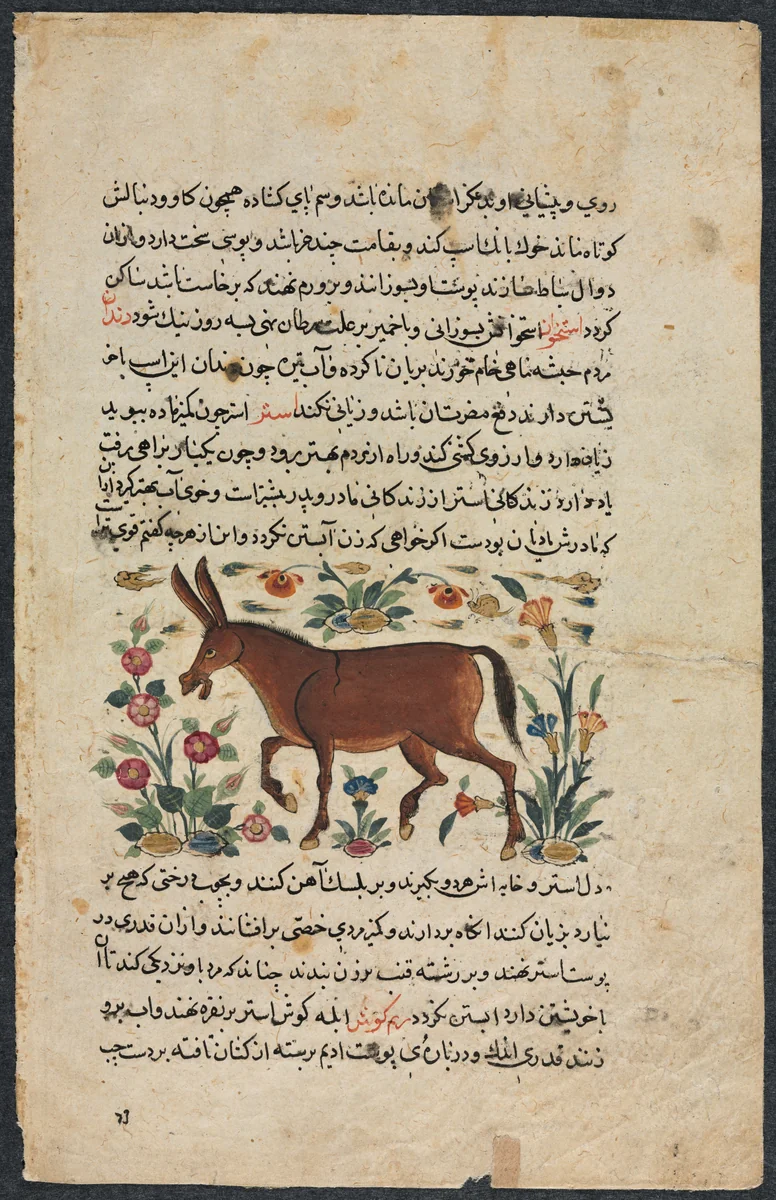 روي و پیشاني او بدیکر اسبان مانده باشد و سم پاي کشاده همچون کاو و دنبالش
کوتاه مانند خوك بانك اسپ کند و بقامت چند خر باشد و پوستی سخت دارد و ازان
دوال سازند پوست او بسوزانند و بر ورم نهند که برخاست باشد ساکن
کردد استخوان استخوانش بسوزانی و با خمیر بر علت سرطان نهی بسه روز نیك شود دندان
مردم حبشه ماهی خام خورند بریان ناکرده و آب تیره چون دندان این اسب با خو
یشتن دارند دفع مضرتان باشد و زیانی نکند استر استر چون کمیز ماده ببوید
زیان دارد و ارزوی کشی کند و راه از مردم بهتر برود و چون یکبار براهی رفت
یاد دارد زندکانی استر از زندکانی مادر و پدر بیشتر است و خوی آب بهتر کیرد ازان
که مادرش مادیان بودست اکر خواهی که زن آبستن نکردد و این از هرچه کفتم قوي تراست
دل استر و خایه اش هر دو بکیرند و بر بلسك آهن کنند و بچوب درختی که هیچ بر
نیارد بریان کنند انکاه بردارند و کمیز مردي خصی بر افشانند و ازان قدری در
پوست استر نهند و بر رشته قنب بر زن بندند چنانکه مرد با و نزدیکی کند تا آن
با خویشتن دارد ابستن نکردد ریم کوش الله کوش استر بر نقره نهند و اب برو
زنند قدری اندك و در پاره ٔ پوست ادیم بربسته از کتان تافته بر دست چپ
73